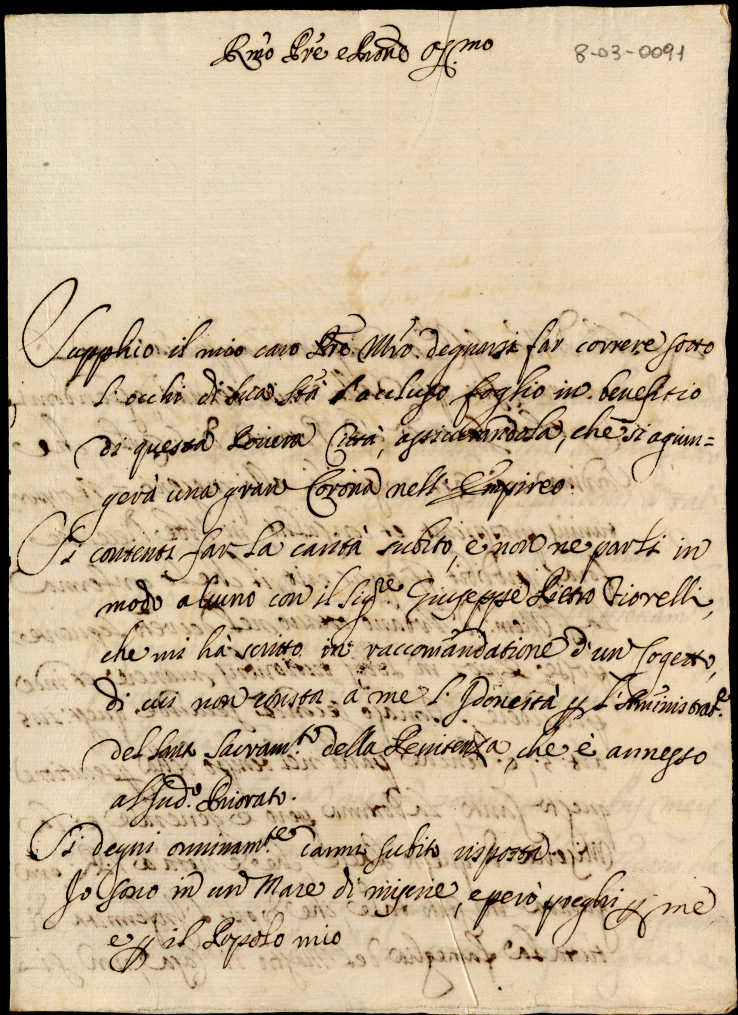 Rmo Pre e Pron Oss.mo
8-03-0091
Supplico il mio caro Pre Mro. degnarsi far correre sotto
l'occhi di Sua Stà l'accluso foglio in benefitio
di questa Povera Città, assicurandola, che si agiun=
gerà una gran Corona nell'Empireo.
Si contenti far la carità subito, e non ne parli in
modo alcuno con il Sigre. Giuseppe Pietro Fiorelli,
che mi hà scritto in raccomandatione d'un sogetto,
di cui non consta à me l'Idoneità p l'Aministrat.e
del Sant Sacram.to della Penitenza, che è annesso
al sud.o Priorato.
Si degni oninam.te darmi subito risposta.
Io sono in un Mare di miserie, e però preghi p me,
e p il Popolo mio